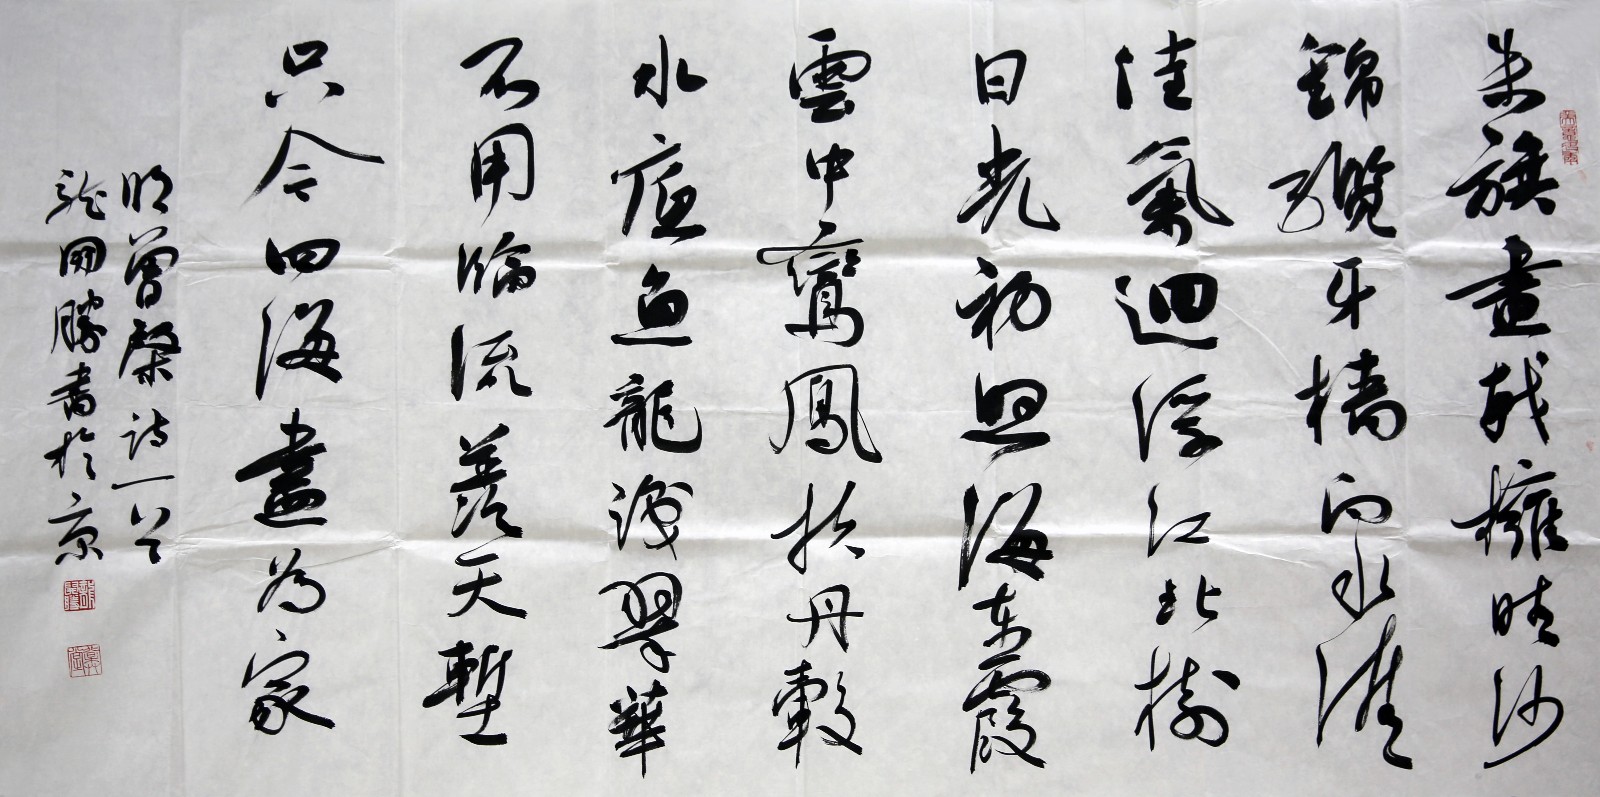 朱旗畫戟擁晴沙
錦纜牙檣向水涯
佳氣迴浮江北樹
日光初照海東霞
雲中鸞鳳扶丹轂
水底魚龍識翠華
不用臨流羨天塹
只今四海盡為家
明曾棨詩一首
龍開勝書於京